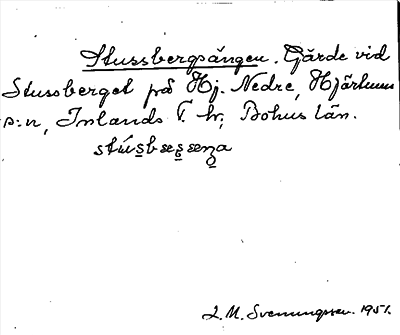 Stussbergsängen. Gärde vid
Stussberget på Hj. Nedre, Hjärtums
s:n, Inlands T. hr; Bohus län.
L. M. Svenungsson. 1951.